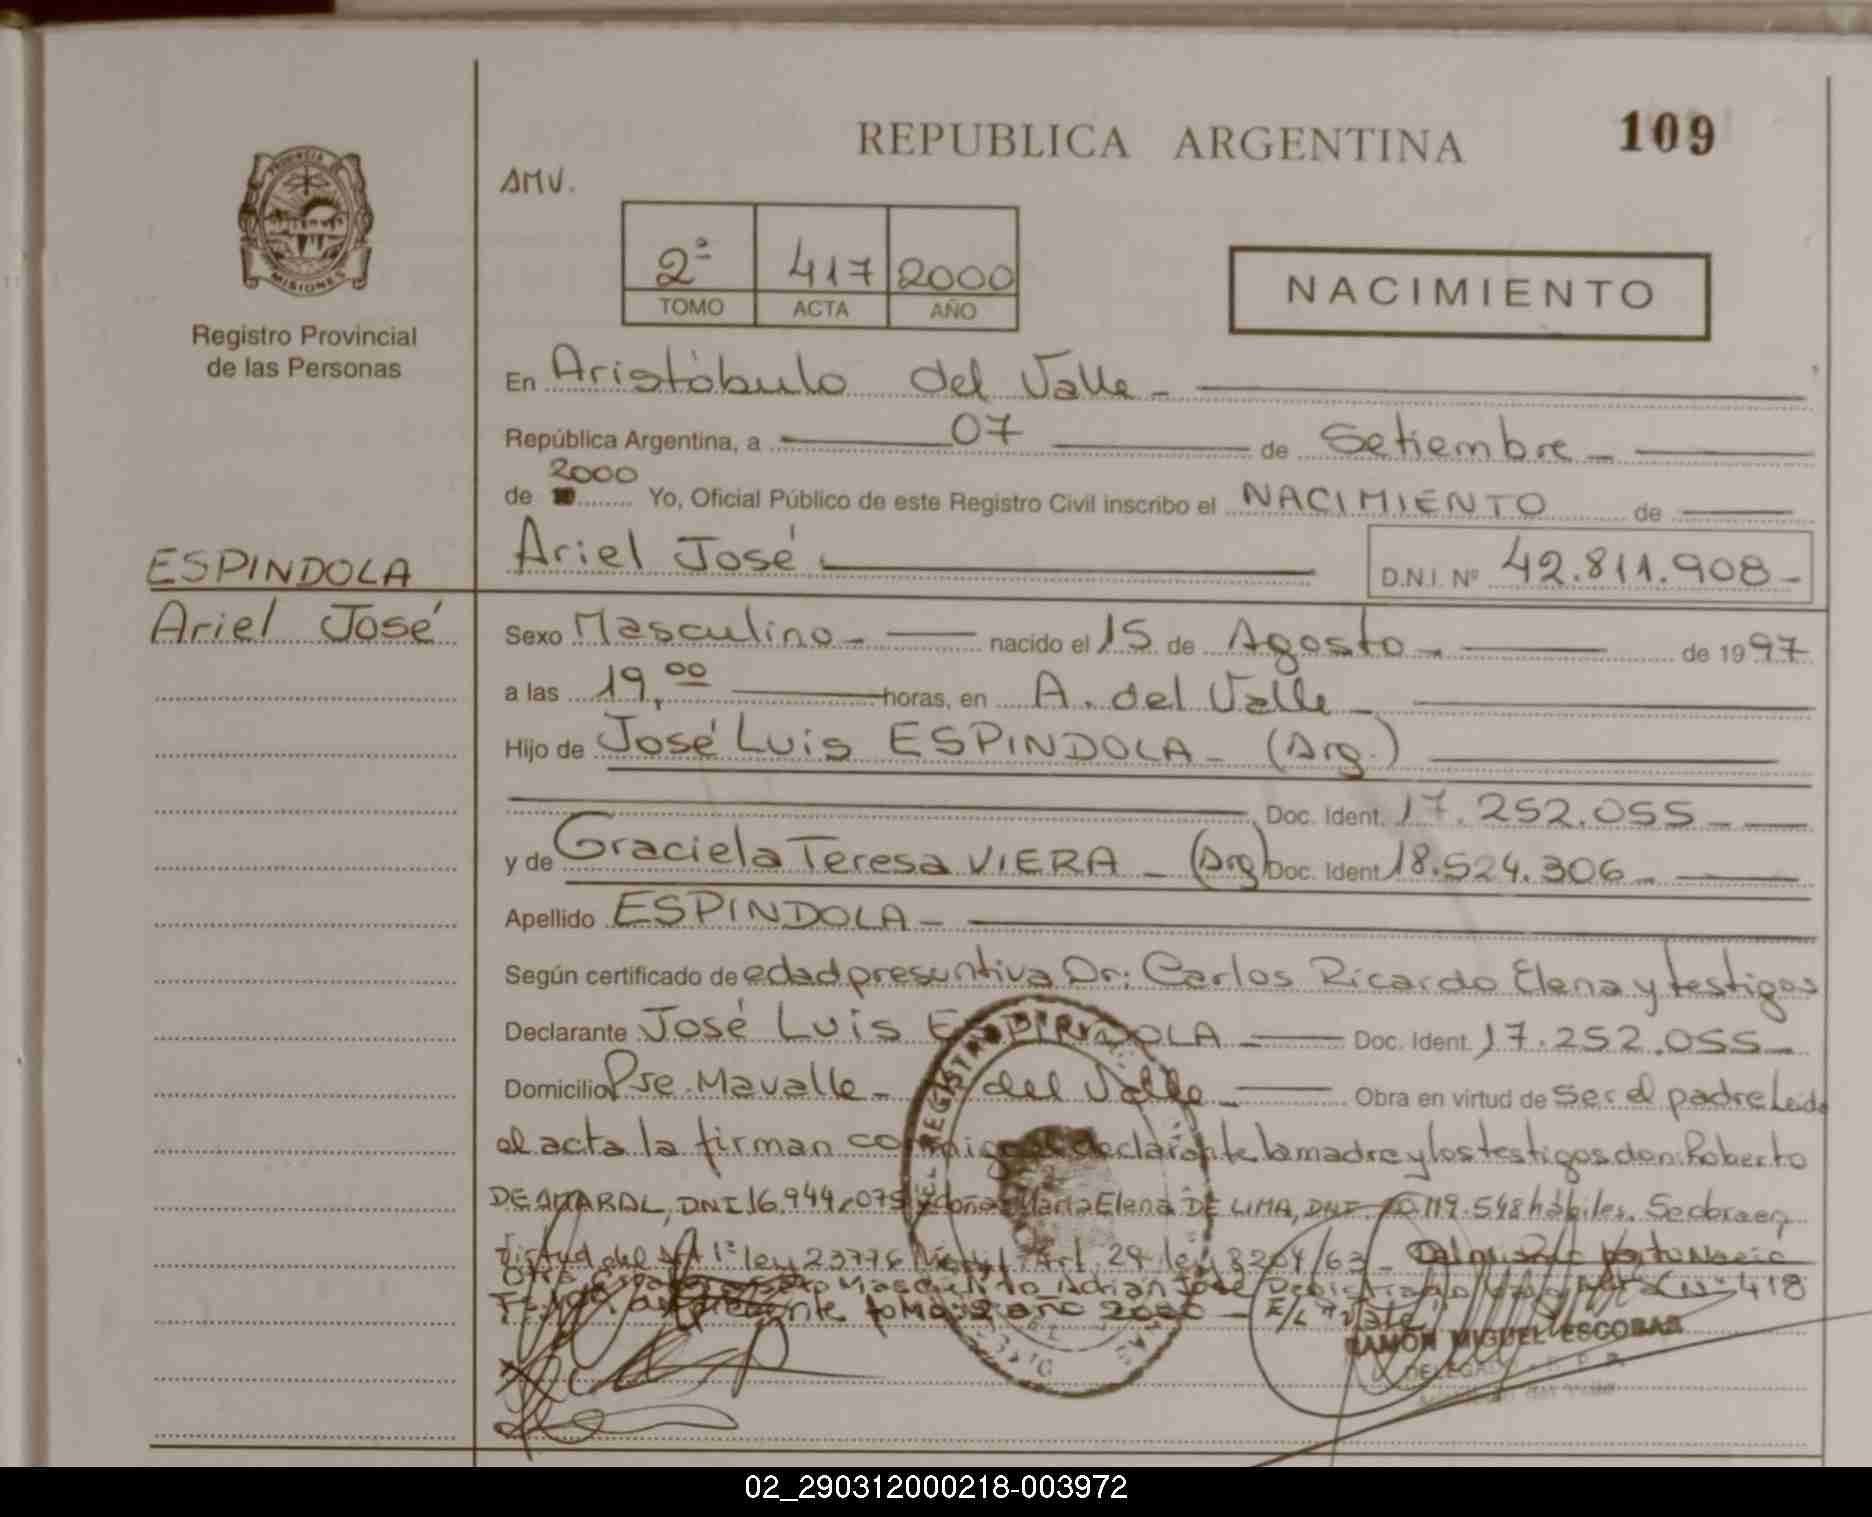 REPUBLICA ARGENTINA
109
PROVINCIA
MISIONES
Registro Provincial
de las Personas
AMV.
2º 417 2000
TOMO ACTA AÑO
NACIMIENTO
En Aristóbulo del Valle
República Argentina, a 07 de Setiembre
de 2000 Yo, Oficial Público de este Registro Civil inscribo el NACIMIENTO de
Ariel José D.N.I. Nº 42.811.908
ESPINDOLA
Ariel José
Sexo Masculino nacido el 15 de Agosto de 1997
a las 19,00 horas, en A. del Valle
Hijo de José Luis ESPINDOLA (Arg.)
Doc. Ident. 17.252.055
y de Graciela Teresa VIERA (Arg) Doc. Ident. 18.524.306
Apellido ESPINDOLA
Según certificado de edad presuntiva Dr: Carlos Ricardo Elena y testigos
Declarante José Luis ESPINDOLA Doc. Ident. 17.252.055
Domicilio Pje. Mavalle del Valle Obra en virtud de ser el padre Leida
el acta la firman conmigo el declarante la madre y los testigos don: Roberto
DE AMARAL, DNI 16.944.075 y doña: Maria Elena DE LIMA, DNI 119.548 hábiles. Se obra en
virtud del Art 1º ley 23776 Art. 29 ley 8204/63
sexo Masculino Adrian José Acta Nº 418
tomo 2º año 2000 E/L "Vale"
RAMON MIGUEL ESCOBAR
02_290312000218-003972